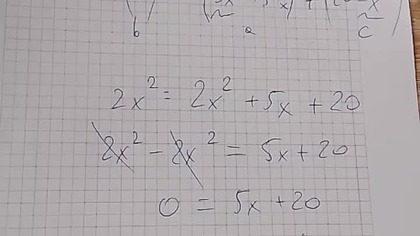 b a c
2x² = 2x² + 5x + 20
2x² - 2x² = 5x + 20
0 = 5x + 20